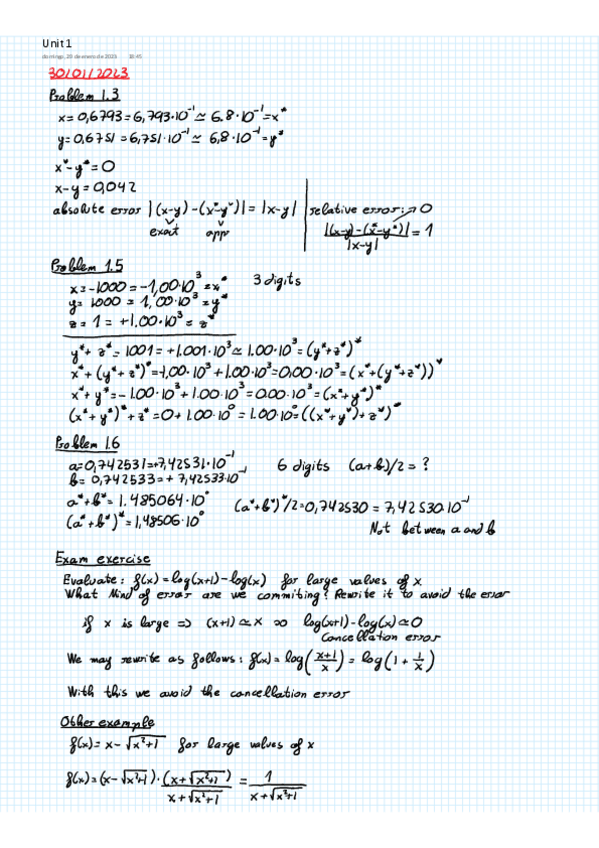 Unit 1
domingo, 29 de enero de 2023 18:45
30/01/2023
Problem 1.3
x=0,6793=6,793·10^-1≃6.8·10^-1=x*
y=0.6751=6,751·10^-1≃6,8·10^-1=y*
x*-y*=0
x-y=0,042
absolute error |(x-y)-(x*-y*)|=|x-y|
exact app
relative error: → 0
|(x-y)-(x*-y*)| / |x-y| = 1
Problem 1.5
x=-1000=-1,00·10^3=x* 3 digits
y=1000=1,00·10^3=y*
z=1=+1.00·10^3=z*
y*+z*=1001=+1.001·10^3≃1.00·10^3=(y*+z*)*
x*+(y*+z*)*=-1,00·10^3+1.00·10^3=0.00·10^3=(x*+(y*+z*))*
x*+y*=-1.00·10^3+1.00·10^3=0.00·10^3=(x*+y*)*
(x*+y*)*+z*=0+1.00·10^0=1.00·10^0=((x*+y*)+z*)*
Problem 1.6
a=0,742531=+7,42531·10^-1 6 digits (a+b)/2=?
b=0,742533=+7,42533·10^-1
a*+b*=1.485064·10^0 (a*+b*)*/2=0,742530=7,42530·10^-1
(a*+b*)*=1,48506·10^0
Not between a and b
Exam exercise
Evaluate: f(x)=log(x+1)-log(x) for large values of x
What kind of error are we commiting? Rewrite it to avoid the error
if x is large => (x+1)≃x so log(x+1)-log(x)≃0
Cancellation error
We may rewrite as follows: f(x)=log((x+1)/x)=log(1+1/x)
With this we avoid the cancellation error
Other example
f(x)=x-√(x²+1) for large values of x
f(x)=(x-√(x²+1))·(x+√(x²+1))/(x+√(x²+1))=1/(x+√(x²+1))